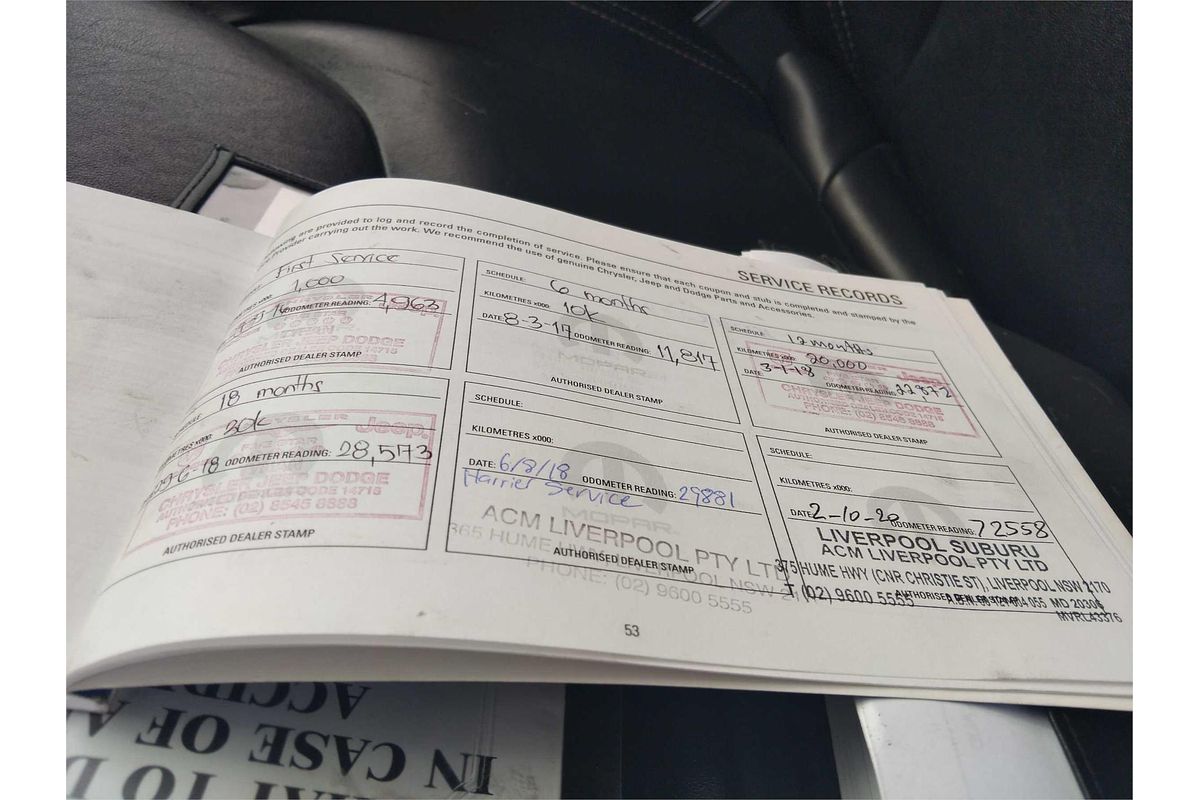 SERVICE RECORDS
are provided to log and record the completion of service. Please ensure that each coupon and stub is completed and stamped by the
provider carrying out the work. We recommend the use of genuine Chrysler, Jeep and Dodge Parts and Accessories.
First Service
1,000
ODOMETER READING: 4,963
CHRYSLER JEEP DODGE
AUTHORISED DEALER STAMP
SCHEDULE: 6 months
KILOMETRES x000: 10k
DATE: 8-3-17 ODOMETER READING: 11,817
MOPAR
AUTHORISED DEALER STAMP
SCHEDULE: 12 months
KILOMETRES x000: 20,000
DATE: 3-1-18
ODOMETER READING: 22972
Jeep
CHRYSLER JEEP DODGE
PHONE: (02) 8545 8888
AUTHORISED DEALER STAMP
18 months
30k
ODOMETER READING: 28,573
CHRYSLER Jeep
FIVE STAR
CHRYSLER JEEP DODGE
AUTHORISED DEALER CODE 14715
PHONE: (02) 8545 8888
AUTHORISED DEALER STAMP
SCHEDULE:
KILOMETRES x000:
DATE: 6/8/18 ODOMETER READING: 29881
Harrier Service
MOPAR
ACM LIVERPOOL PTY LTD
365 HUME HWY LIVERPOOL NSW
AUTHORISED DEALER STAMP
PHONE: (02) 9600 5555
SCHEDULE:
KILOMETRES x000:
DATE: 2-10-20 ODOMETER READING: 72558
LIVERPOOL SUBURU
ACM LIVERPOOL PTY LTD
375 HUME HWY (CNR CHRISTIE ST), LIVERPOOL NSW 2170
T (02) 9600 5555
MD 20306
MVRL43376
53
IN CASE OF